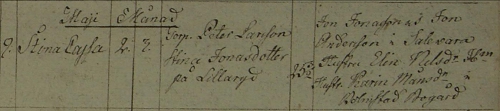 Maji Månad
9. Stina Cajsa 2. 7. Torp. Peter Larsson
Stina Jonasdotter
på Lillaryd
Jon Jonasson, Jon
Andersson i Salevara
25½ Hustru Elin Nilsd:r
Hustr. Karin Månsd:r i
Bolmstad Bogård